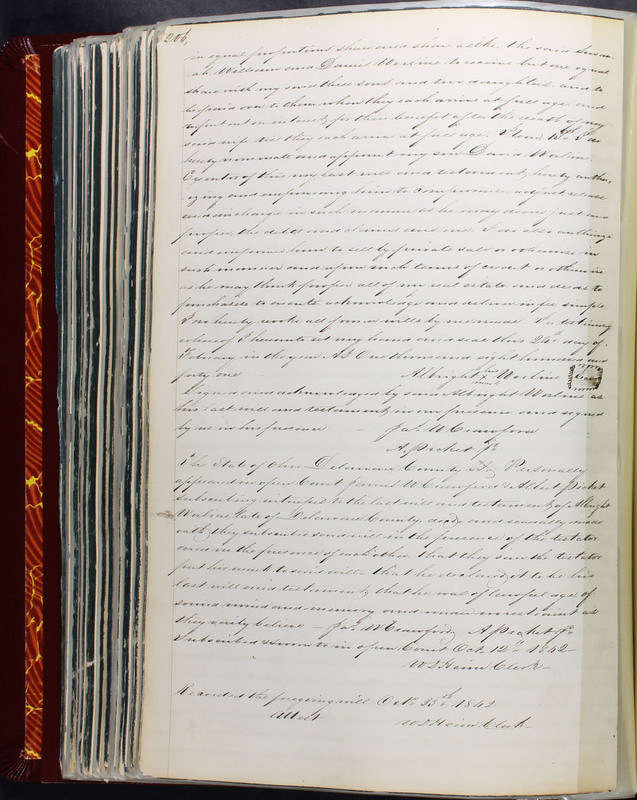 206,
in equal proportions share and share alike. the said Susan-
ah William and Daniel Worline to receive but one equal
share with my said three sons and two daughters. and to
be paid over to them when they each arrive at full age and
put out on interest, for their benefit after the death of my
said wife till they each arrive at full age. Item 13th I do
hereby nominate and appoint my son David Worline
Executor of this my last will and testament, hereby author-
izing and empowering him to compromise adjust release
and discharge in such manner as he may deem just and
proper the debts and claims due me. I do also authorize
and empower him to sell by private sale or otherwise in
such manner and upon such terms of credit or otherwise
as he may think proper all of my real estate and deeds to
purchasers to execute acknowledge and deliver in fee simple
I do hereby revoke all former wills by me made. In testimony
whereof I hereunto set my hand and seal this 24th day of
February in the year AD One thousand eight hundred and
forty one Albright his x mark Worline Seal
Signed and acknowledged by said Albright Worline as
his last will and testament in our presence and signed
by us in his presence Jas. W Crawford
A. Picket Jr
The State of Ohio Delaware County SS, Personally
appeared in open Court James W Crawford & Albert Picket
subscribing witnesses to the last will and testament of Albright
Worline late of Delaware County decd, and severally made
oath they subscribed said will in the presence of the testator
and in the presence of each other that they saw the testator
put his mark to said will - that he declared it to be his
last will and testament, that he was of lawful age, of
sound mind and memory and under no restraint as
they verily believe - Jas. W Crawford, A Picket Jr
Subscribed & sworn to in open Court Oct. 12th 1842
W S Heim Clerk
Recorded the foregoing will Octr 25th 1842
Attest W S Heim Clerk